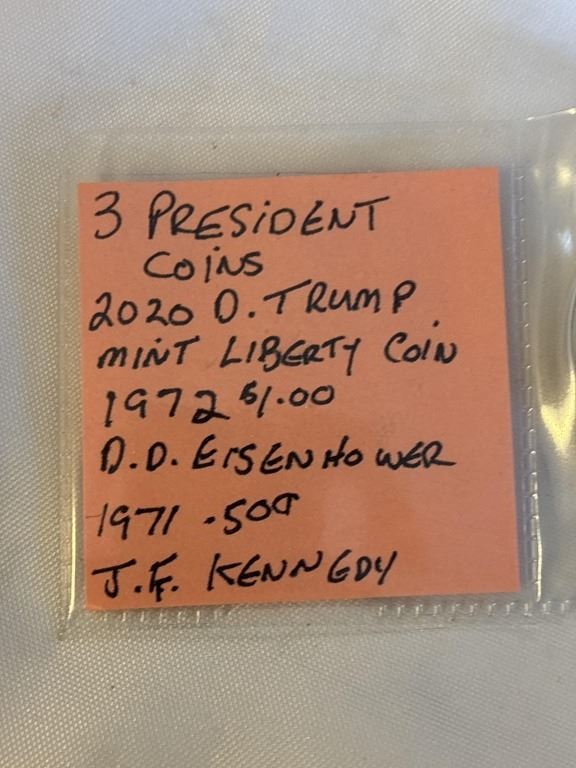 3 PRESIDENT
COINS
2020 D. TRUMP
MINT LIBERTY COIN
1972 $1.00
D.D. EISENHOWER
1971 .50¢
J.F. KENNEDY